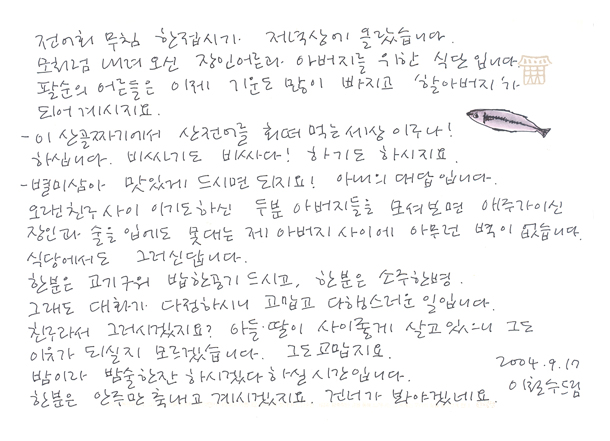 전어회 무침 한접시가 저녁상에 올랐습니다.
모처럼 내려오신 장인어른과 아버지를 위한 식단입니다.
팔순의 어른들은 이제 기운도 많이 빠지고 '할아버지'가
되어 계시지요.
- 이 산골짜기에서 산전어를 회떠 먹는 세상이구나!
하십니다. 비싸기도 비싸다! 하기도 하시지요.
- 별미삼아 맛있게 드시면 되지요! 아내의 대답입니다.
오랜친구 사이이기도하신 두분 아버지들을 모셔보면 애주가이신
장인과 술을 입에도 못대는 제 아버지 사이에 아무런 벽이 없습니다.
식당에서도 그러신답니다.
한분은 고기구워 밥한공기 드시고, 한분은 소주한병.
그래도 대화가 다정하시니 고맙고 다행스러운 일입니다.
친구라서 그러시겠지요? 아들·딸이 사이좋게 살고있으니 그도
이유가 되실지 모르겠습니다. 그도 고맙지요.
밤이라 밤술한잔 하시겠다 하실 시간입니다.
한분은 안주만 축내고 계시겠지요. 건너가 봐야겠네요.
2004.9.17
이철수드림